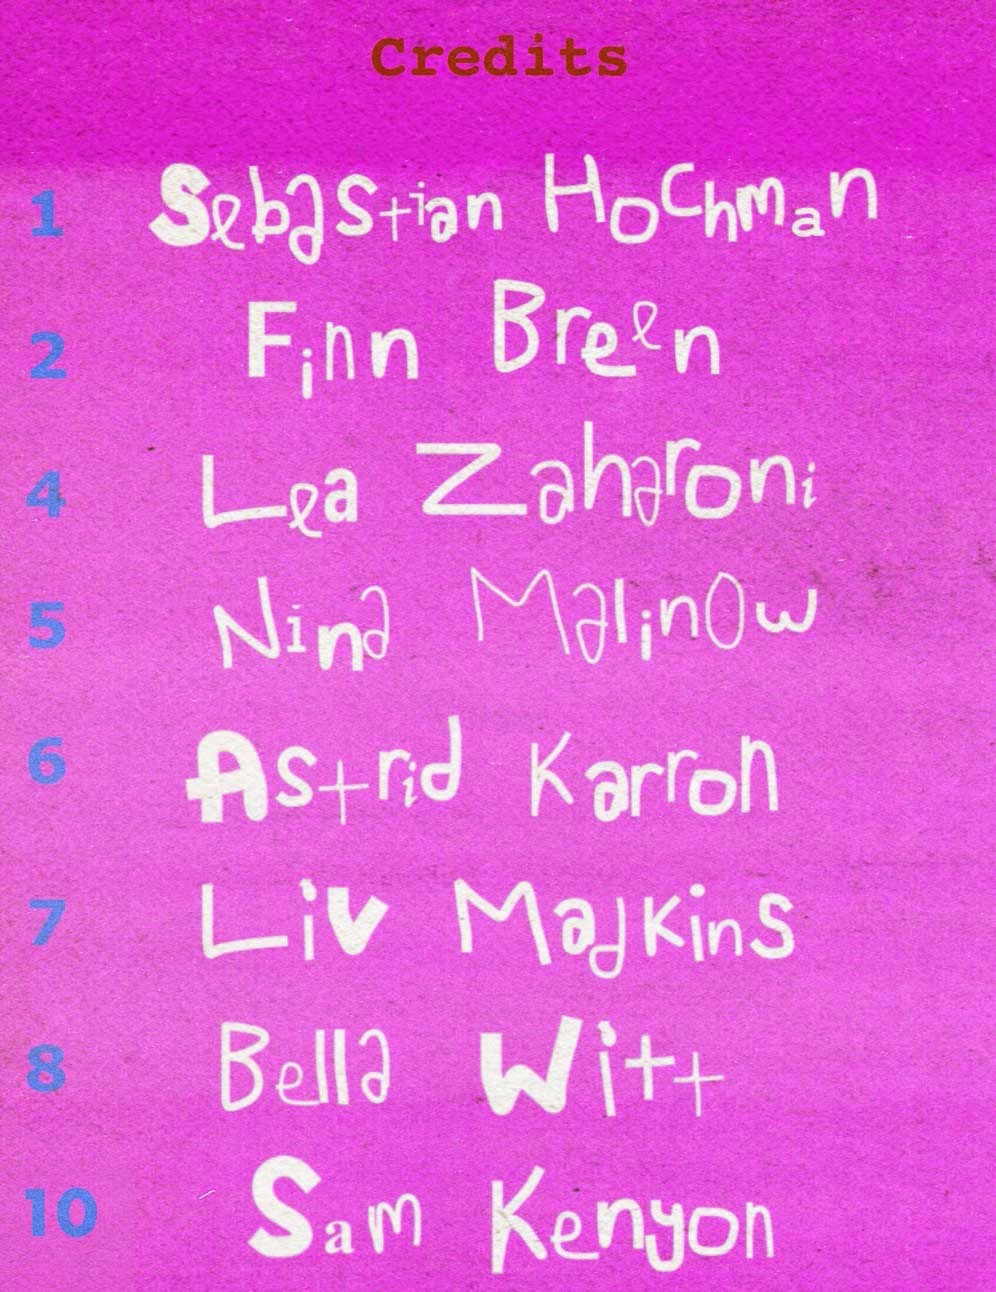 Credits
1 Sebastian Hochman
2 Finn Breen
4 Lea Zaharoni
5 Nina Malinow
6 Astrid Karron
7 Liv Madkins
8 Bella Witt
10 Sam Kenyon